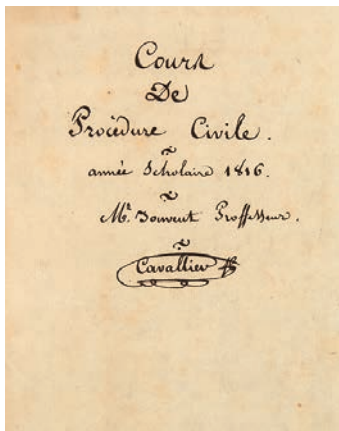 Cours
De
Procédure Civile.
année Scholaire 1816.
Mr. Jouvent Proffesseur.
Cavallier